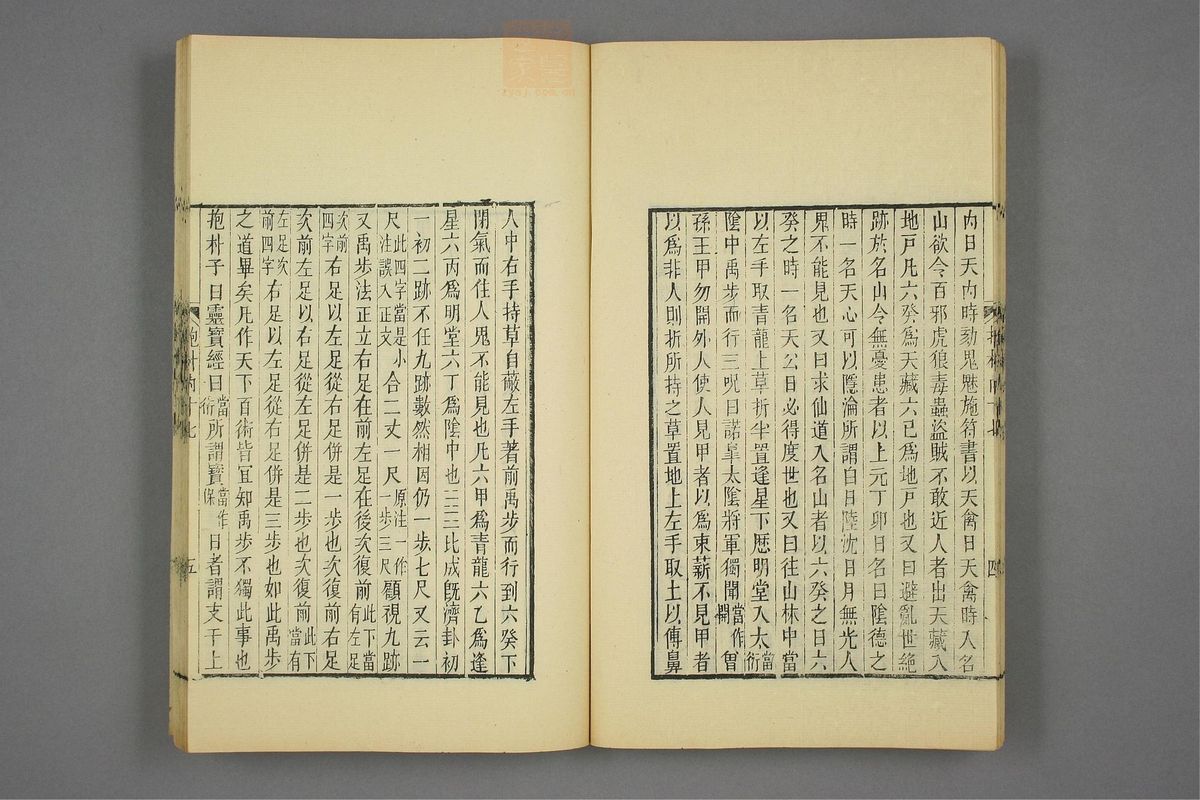 內日天內時劾鬼魅施符書以天禽日天禽時入名
山欲令百邪虎狼毒蟲盜賊不敢近人者出天藏入
地戸凡六癸爲天藏六己爲地戸也又曰避亂世絶
跡於名山令無憂患者以上元丁卯日名曰陰德之
時一名天心可以隱淪所謂白日陸沈日月無光人
鬼不能見也又曰求仙道入名山者以六癸之日六
癸之時一名天公日必得度世也又曰往山林中當
以左手取青龍上草折半置逢星下歷明堂入太當衍
陰中禹步而行三呪曰諾皋太陰將軍獨聞當作開曾
孫王甲勿開外人使人見甲者以爲束薪不見甲者
以爲非人則折所持之草置地上左手取土以傅鼻
人中右手持草自蔽左手著前禹步而行到六癸下
閉氣而住人鬼不能見也凡六甲爲青龍六乙爲逢
星六丙爲明堂六丁爲陰中也比成旣濟卦初
一初二跡不任九跡數然相因仍一步七尺又云一
尺此四字當是小注誤入正文合二丈一尺原注一作一步三尺顧視九跡
又禹步法正立右足在前左足在後次復前此下當有左足
次前四字右足以左足從右足併是一步也次復前右足
次前左足以右足從左足併是二步也次復前此下當有
左足次前四字右足以左足從右足併是三步也如此禹步
之道畢矣凡作天下百術皆宜知禹步不獨此事也
抱朴子曰靈寶經曰當衍所謂寶當作保日者謂支干上
四
抱朴內十七
五